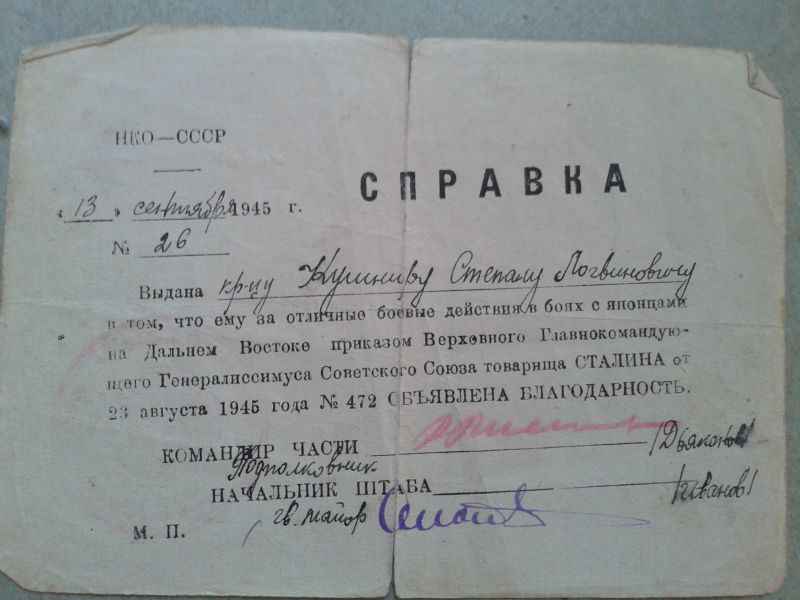 НКО—СССР
СПРАВКА
„13“ сентября 1945 г.
№ 26
Выдана кр-цу Кушниру Степану Логвиновичу
в том, что ему за отличные боевые действия в боях с японцами
на Дальнем Востоке приказом Верховного Главнокомандую-
щего Генералиссимуса Советского Союза товарища СТАЛИНА от
23 августа 1945 года № 472 ОБЪЯВЛЕНА БЛАГОДАРНОСТЬ.
КОМАНДИР ЧАСТИ /Дьяконов/
Подполковник
НАЧАЛЬНИК ШТАБА /Иванов/
гв. майор
М. П.